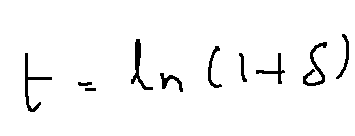 t = ln (1+δ)